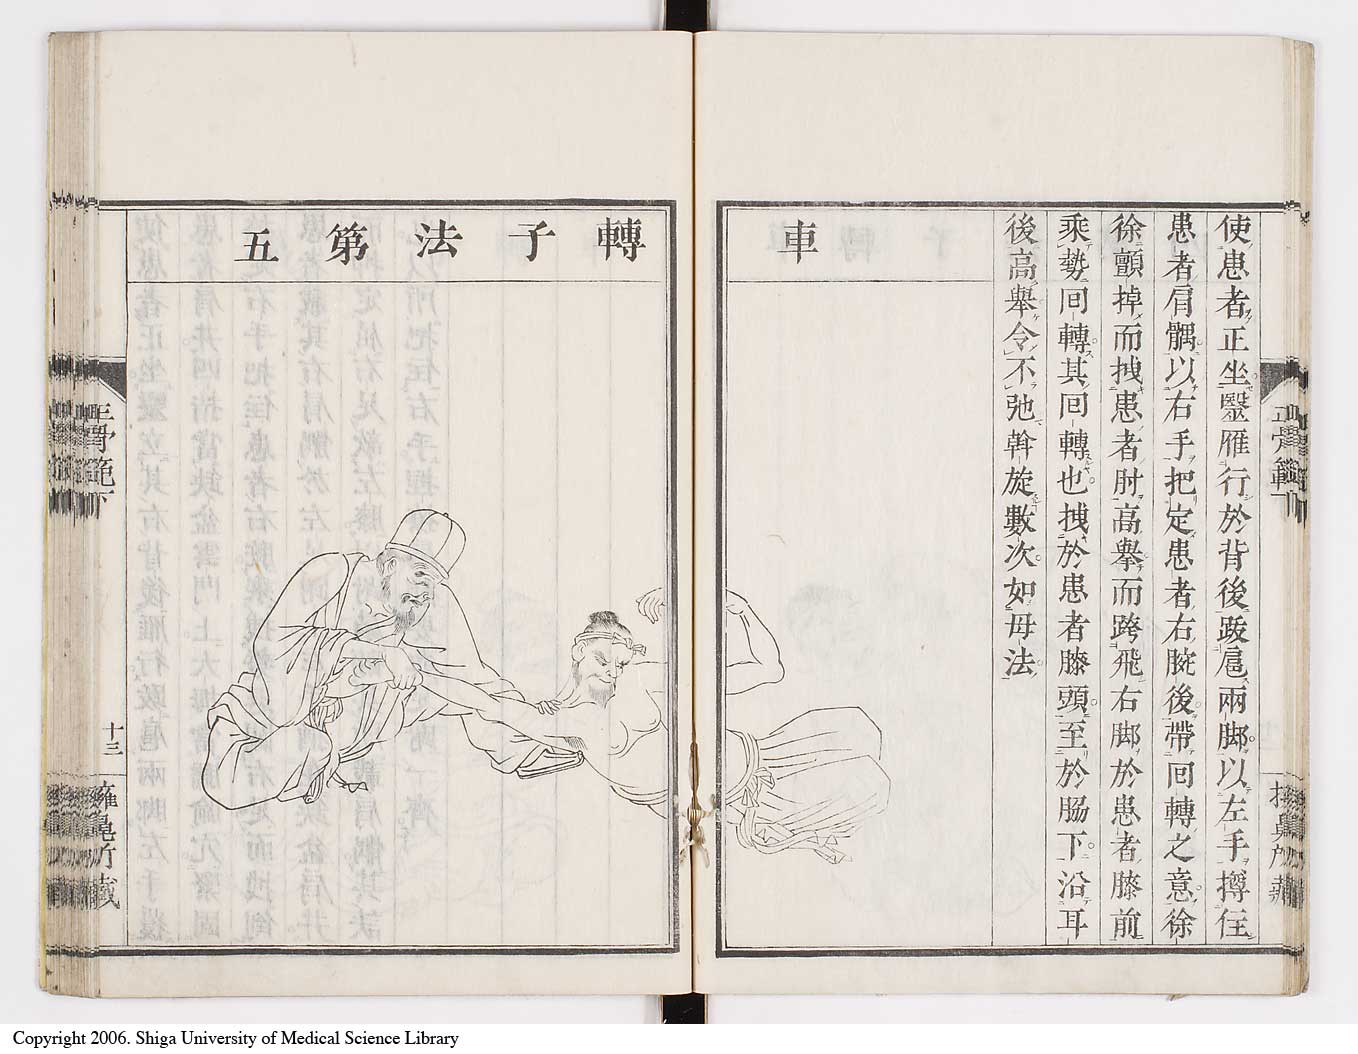 使患者正坐毉雁行於背後跂扈兩脚以左手撙住
患者肩髃以右手把定患者右腕後帶回轉之意徐
徐顫掉而拽患者肘高擧而跨飛右脚於患者膝前
乘勢回轉其回轉也拽於患者膝頭至於脇下沿耳
後高擧令不弛斡旋數次如母法
車
轉子法第五
正骨範下
十三
Copyright 2006. Shiga University of Medical Science Library